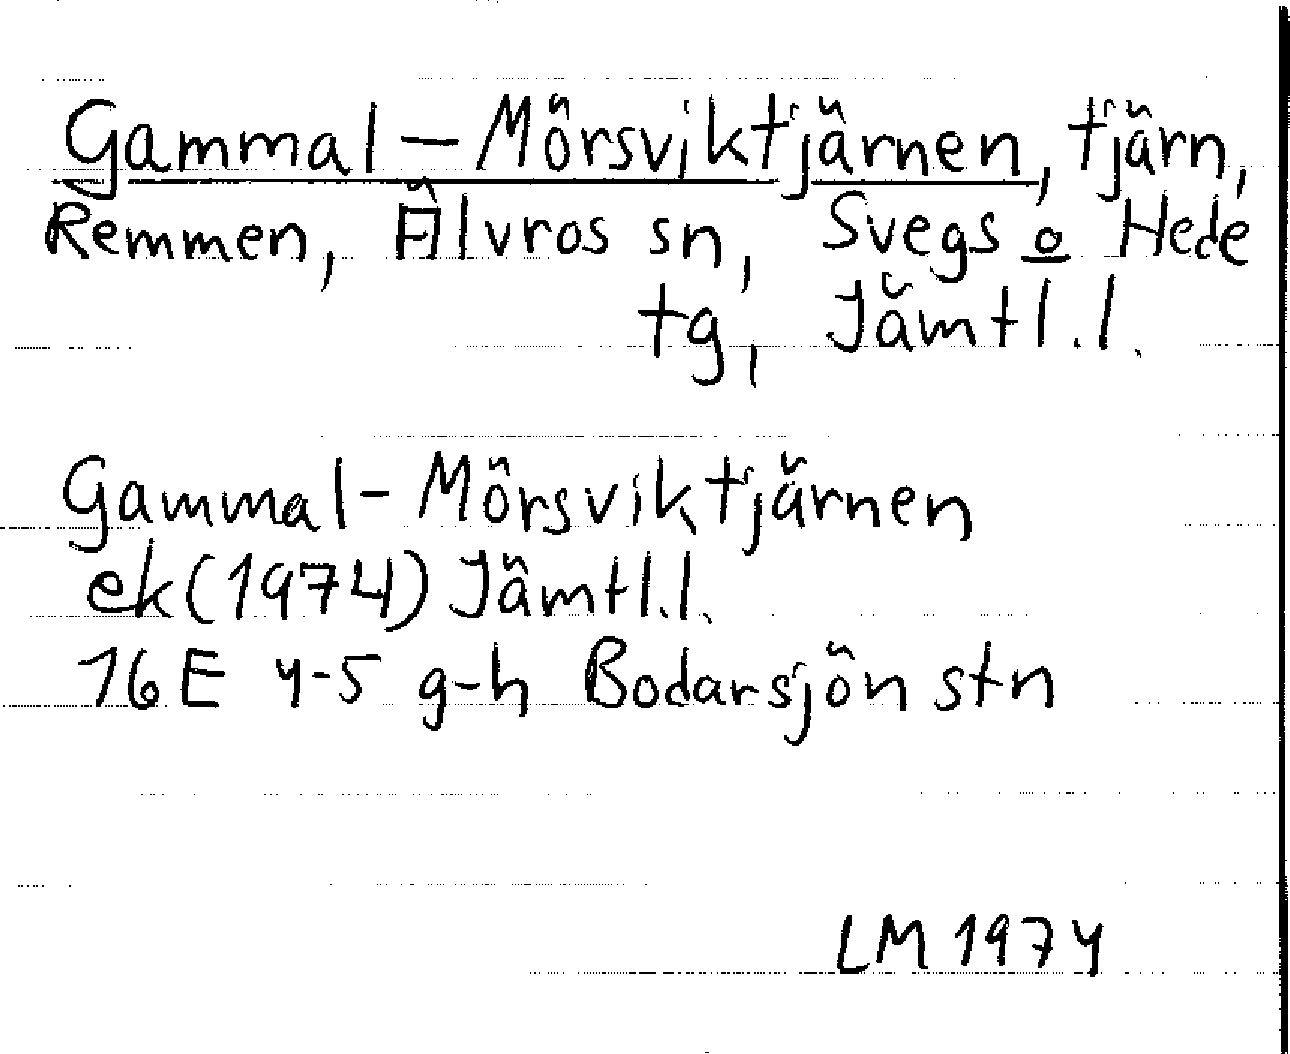 Gammal-Mörsviktjärnen, tjärn,
Remmen, Älvros sn, Svegs o Hede
tg, Jämtl.l.
Gammal-Mörsviktjärnen
ek(1974) Jämtl.l.
16E 4-5 g-h Bodarsjön stn
LM 1974